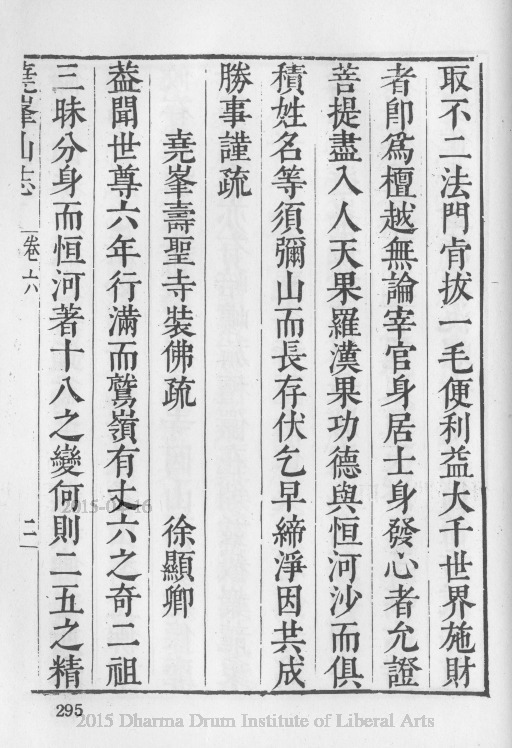 取不二法門肯拔一毛便利益大千世界施財
者卽爲檀越無論宰官身居士身發心者允證
菩提盡入人天果羅漢果功德與恒河沙而俱
積姓名等須彌山而長存伏乞早締淨因共成
勝事謹疏
堯峯壽聖寺裝佛疏 徐顯卿
葢聞世尊六年行滿而鷲嶺有丈六之奇二祖
三昧分身而恒河著十八之變何則二五之精
堯峯山志 卷六 二一
295
2015-06-16
2015 Dharma Drum Institute of Liberal Arts